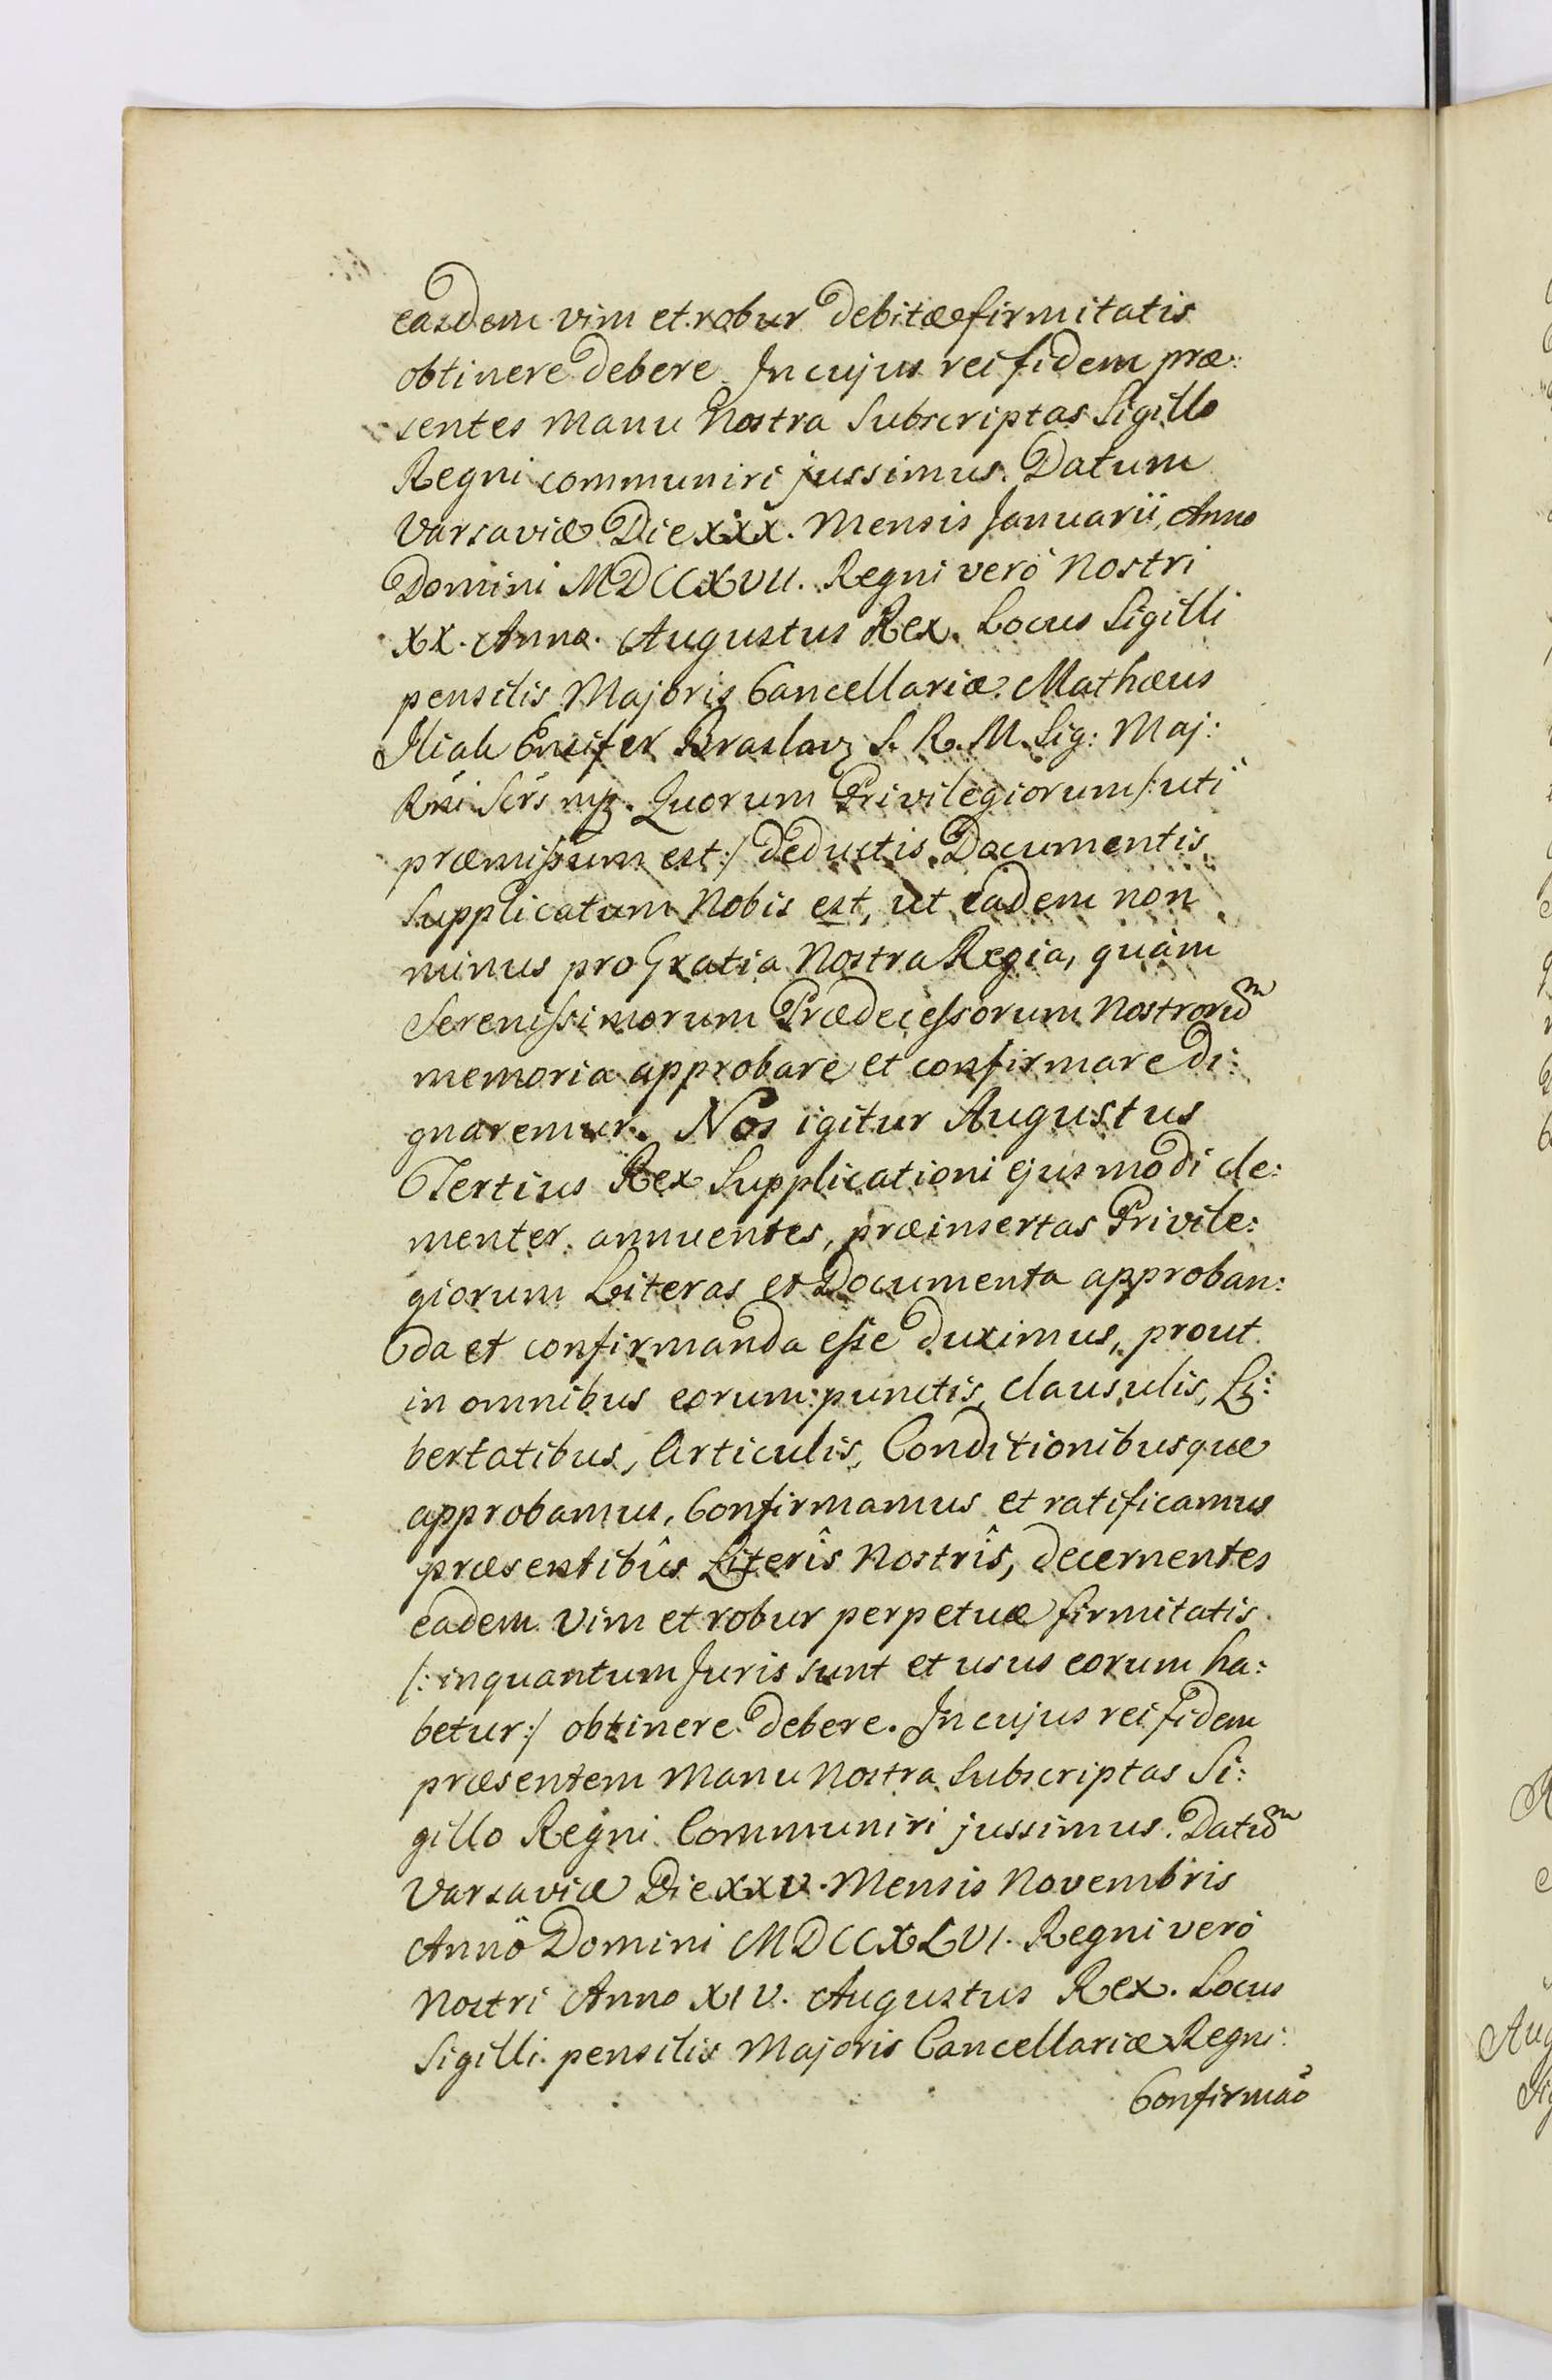 easdem vim et robur debitæ firmitatis
obtinere debere. In cujus rei fidem præ:
sentes manu Nostra Subscriptas Sigillo
Regni communiri jussimus. Datum
Varsaviæ Die XXX. Mensis Januarii, Anno
Domini MDCCXVII. Regni verò Nostri
XX. Anno. Augustus Rex. Locus Sigilli
pensilis Majoris Cancellariæ. Mathæus
Ensifer Braslav S. R. M. Sig: Maj:
Rni Srs mp. Quorum Privilegiorum /: uti
præmissum est :/ deductis Documentis
Supplicatum Nobis est, ut eadem non
minus pro Gratia Nostra Regia, quàm
Serenissimorum Prædecessorum Nostrorum
memoria approbare et confirmare di:
gnaremur. Nos igitur Augustus
Tertius Rex Supplicationi ejusmodi cle:
menter annuentes, præinsertas Privile:
giorum Literas et Documenta approban:
da et confirmanda esse duximus, prout
in omnibus eorum punctis, clausulis, Li:
bertatibus, Articulis, Conditionibusque
approbamus, Confirmamus et ratificamus
præsentibûs Literîs Nostrîs, decernentes
eadem vim et robur perpetuæ firmitatis
/: inquantum Juris sunt et usus eorum ha:
betur :/ obtinere debere. In cujus rei fidem
præsentem manu Nostra Subscriptas Si:
gillo Regni Communiri jussimus. Datum
Varsaviæ Die XXV. Mensis Novembris
Annô Domini MDCCXLVI. Regni verò
Nostri Anno XIV. Augustus Rex. Locus
Sigilli pensilis Majoris Cancellariæ Regni:
Confirmao